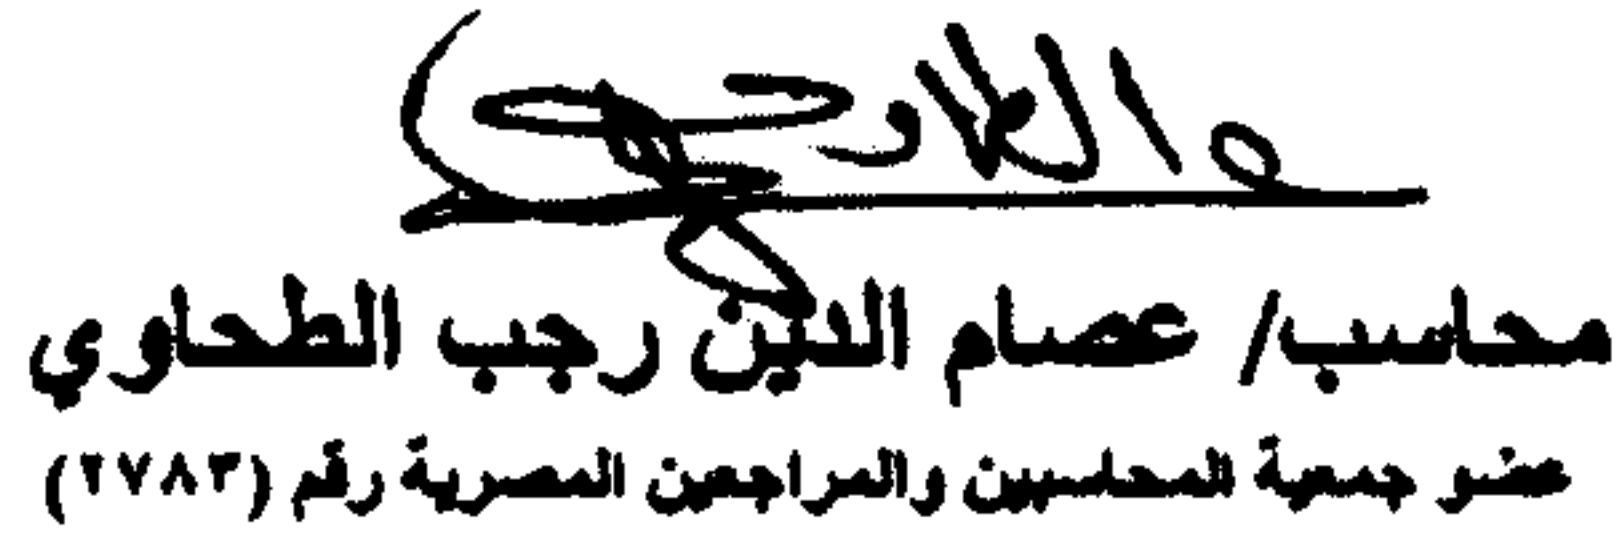 محاسب/ عصام الدين رجب الطحاوي
عضو جمعية المحاسبين والمراجعين المصرية رقم (٢٧٨٣)